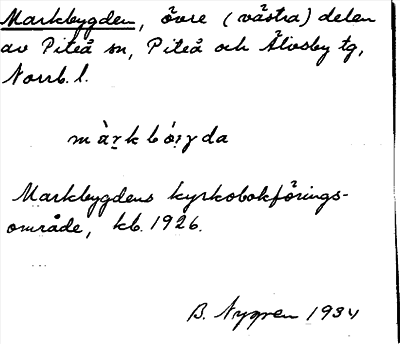 Markbygden, övre (västra) delen
av Piteå sn, Piteå och Älvsby tg,
Norrb. l.
Markbygdens kyrkobokförings-
område, kb. 1926.
B. Nygren 1934